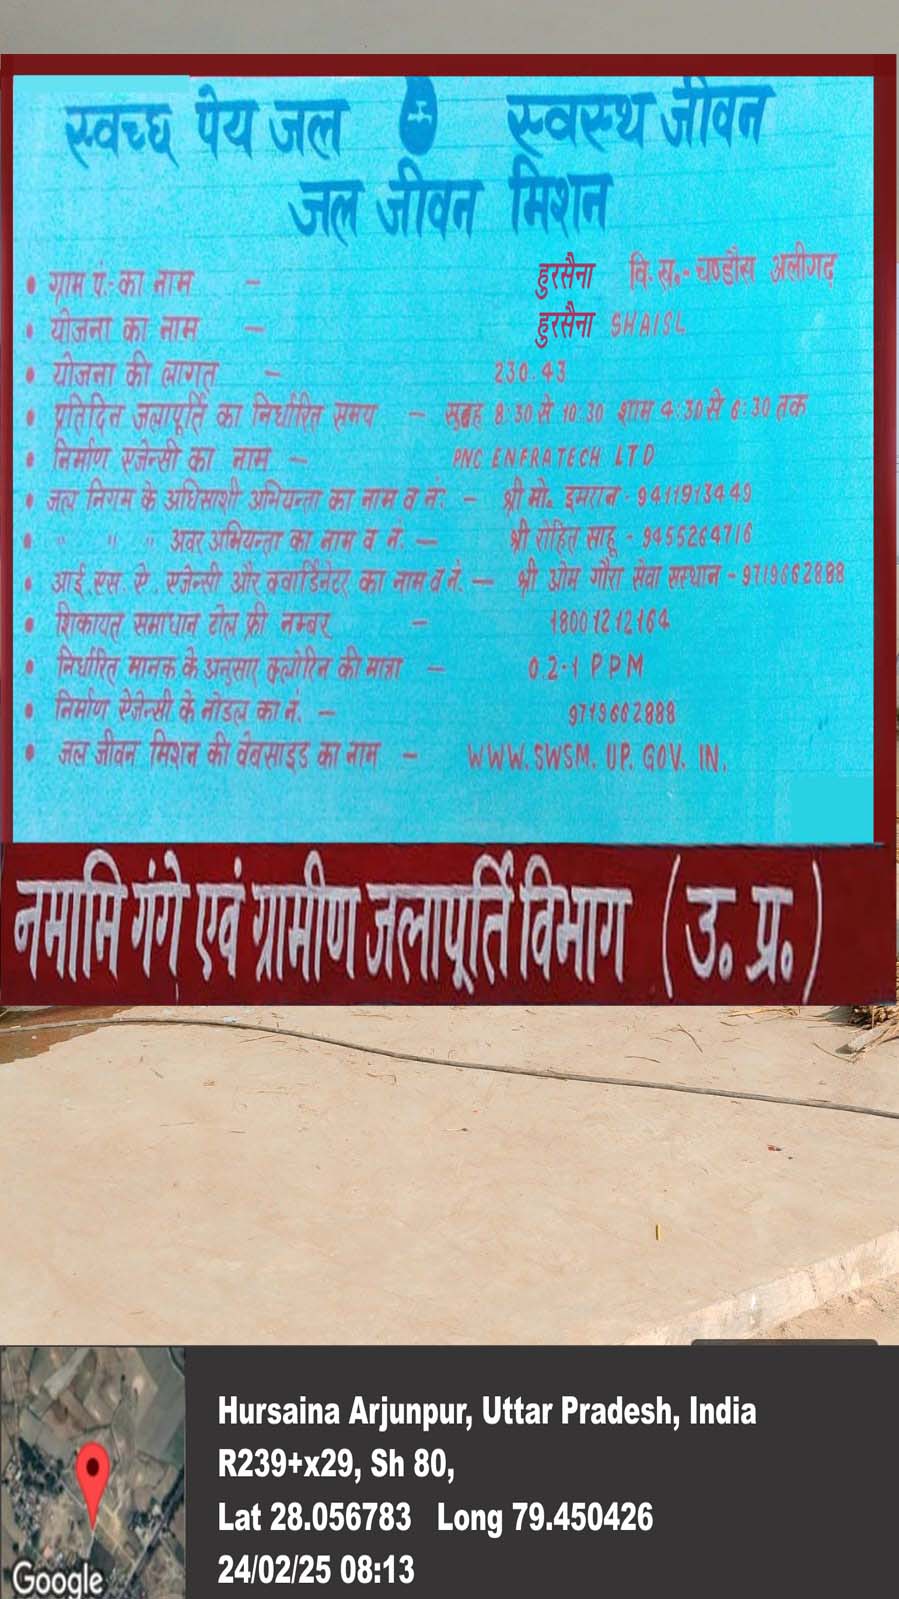 स्वच्छ पेय जल स्वस्थ जीवन
जल जीवन मिशन
• ग्राम पं.-का नाम - हुरसैना वि. ख.- चण्डौस अलीगढ़
• योजना का नाम - हुरसैना SHAISL
• योजना की लागत - 230.43
• प्रतिदिन जलापूर्ति का निर्धारित समय - सुबह 8:30 से 10:30 शाम 4:30 से 6:30 तक
• निर्माण एजेन्सी का नाम - PNC ENFRATECH LTD
• जल निगम के अधिसाशी अभियन्ता का नाम व नं. - श्री मो. इमरान - 9411913449
• " " " अवर अभियन्ता का नाम व नं. - श्री रोहित साहू - 9455264716
• आई. एस. ऐ. एजेन्सी और क्वार्डिनेटर का नाम व नं. - श्री ओम गौरा सेवा सस्थान - 9719662888
• शिकायत समाधान टोल फ्री नम्बर - 18001212164
• निर्धारित मानक के अनुसार क्लोरिन की मात्रा - 0.2-1 PPM
• निर्माण ऐजेन्सी के नोडल का नं. - 9719662888
• जल जीवन मिशन की वेबसाइड का नाम - WWW.SWSM.UP.GOV.IN.
नमामि गंगे एवं ग्रामीण जलापूर्ति विभाग (उ. प्र.)
Hursaina Arjunpur, Uttar Pradesh, India
R239+x29, Sh 80,
Lat 28.056783 Long 79.450426
24/02/25 08:13
Google